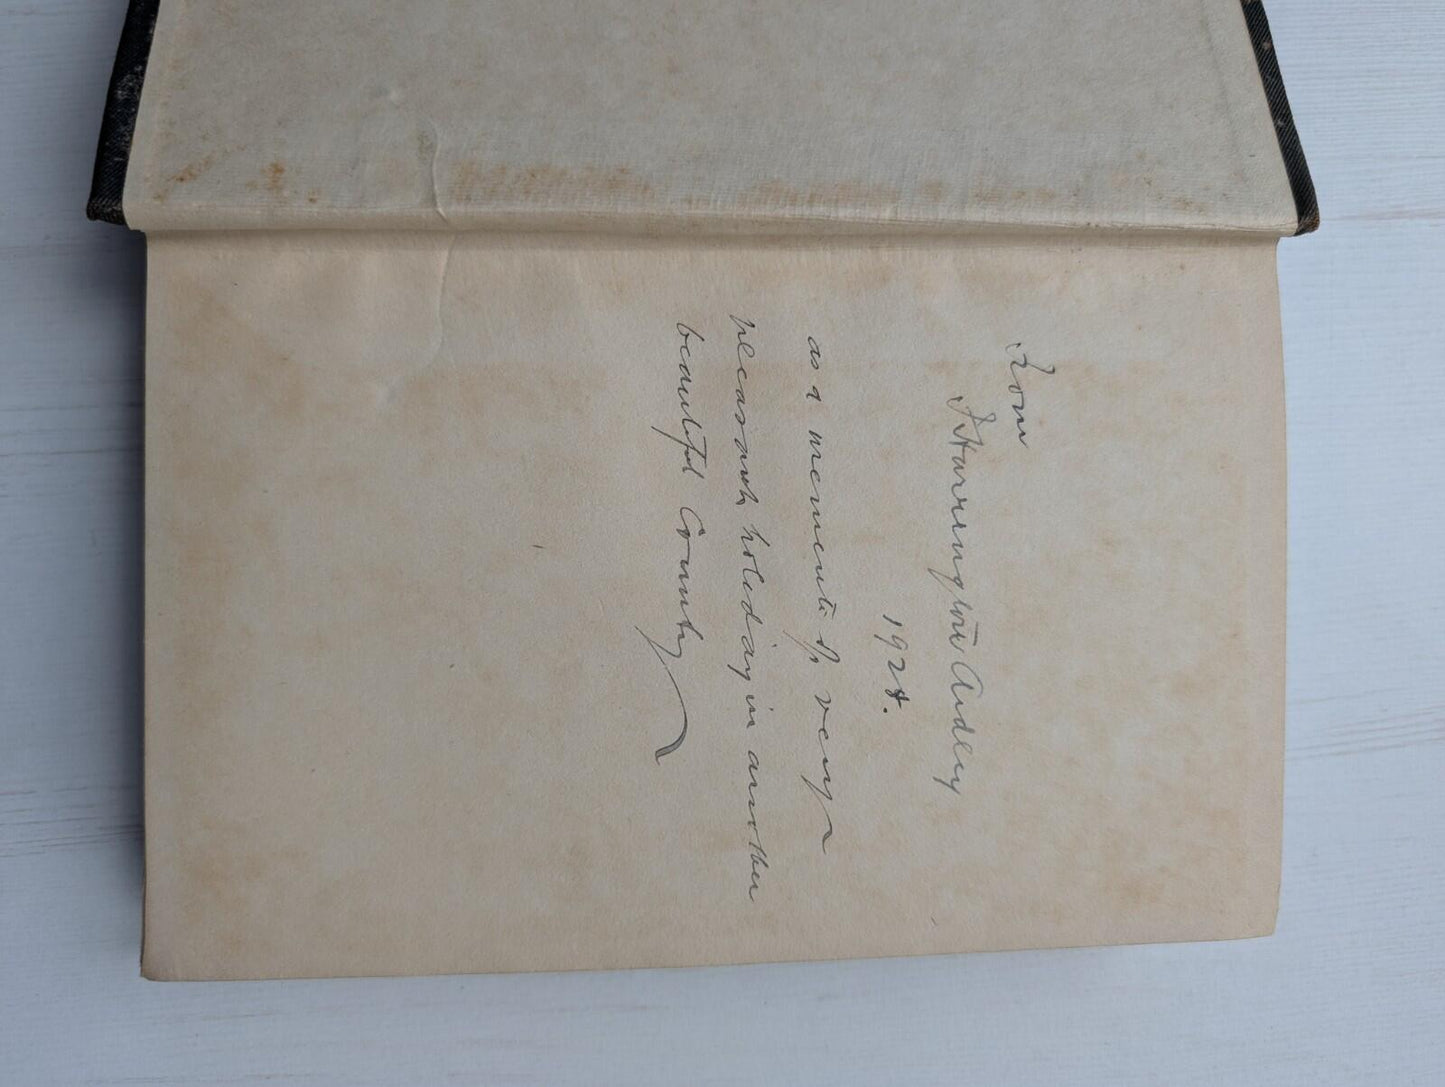 From
J Harrington Ardley
1928.
as a memento of a very
pleasant holiday in another
beautiful County